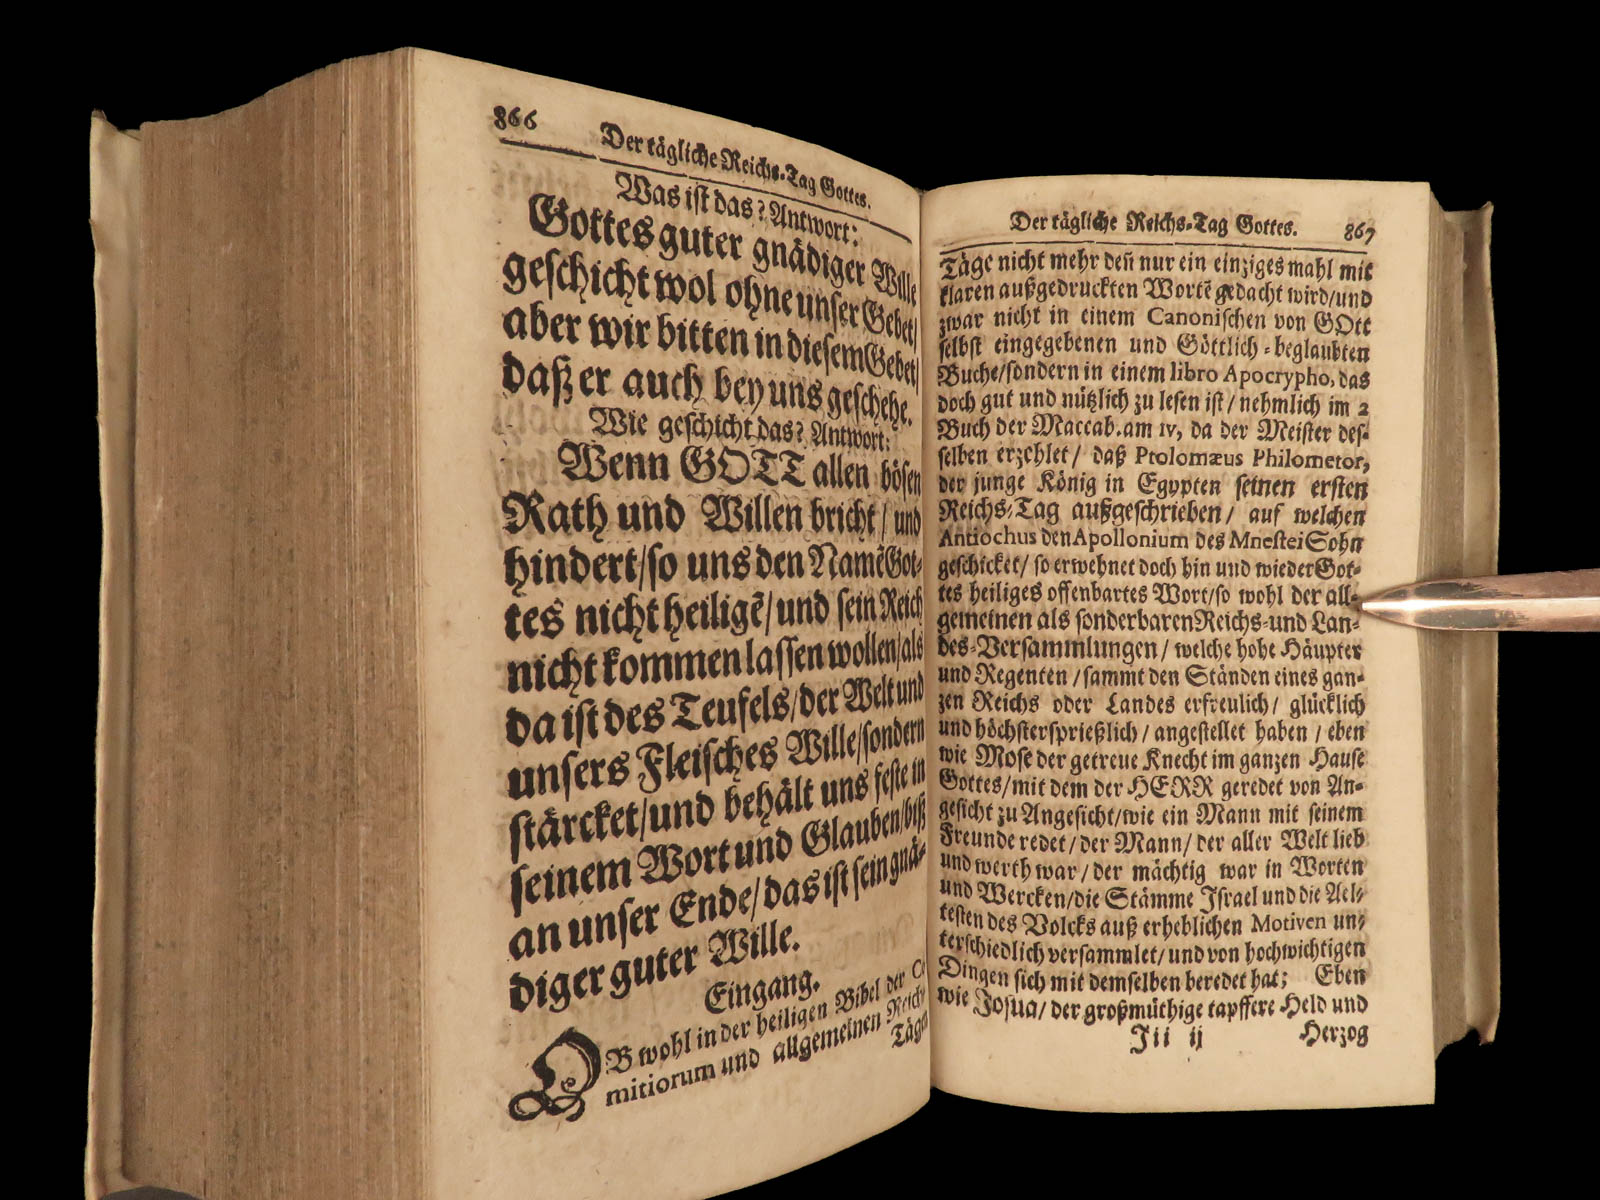 866
Der tägliche Reichs-Tag Gottes.
Was ist das? Antwort:
Gottes guter gnädiger Wille
geschicht wol ohne unser Gebet/
aber wir bitten in diesem Gebet/
daß er auch bey uns geschehe.
Wie geschicht das? Antwort:
Wenn GOTT allen bösen
Rath und Willen bricht/ und
hindert/so uns den Namẽ Got-
tes nicht heiligẽ/und sein Reich
nicht kommen lassen wollen/als
da ist des Teufels/der Welt und
unsers Fleisches Wille/sondern
stärcket/und behält uns feste in
seinem Wort und Glauben/biß
an unser Ende/das ist sein gnä-
diger guter Wille.
Eingang.
OB wohl in der heiligen Bibel der
mitiorum und allgemeinen Reichs
Täge
Der tägliche Reichs-Tag Gottes. 867
Täge nicht mehr deñ nur ein einziges mahl mit
klaren außgedruckten Wortẽ gedacht wird/und
zwar nicht in einem Canonischen von GOtt
selbst eingegebenen und Göttlich-beglaubten
Buche/sondern in einem libro Apocrypho, das
doch gut und nützlich zu lesen ist/ nehmlich im 2
Buch der Maccab. am IV, da der Meister des-
selben erzehlet/ daß Ptolomæus Philometor,
der junge König in Egypten seinen ersten
Reichs-Tag außgeschrieben/ auf welchen
Antiochus den Apollonium des Mnestei Sohn
geschicket/ so erwehnet doch hin und wieder Got-
tes heiliges offenbartes Wort/so wohl der all-
gemeinen als sonderbaren Reichs-und Lan-
des-Versammlungen/ welche hohe Häupter
und Regenten/sammt den Ständen eines gan-
zen Reichs oder Landes erfreulich/ glücklich
und höchstersprießlich/ angestellet haben/ eben
wie Mose der getreue Knecht im ganzen Hause
Gottes/mit dem der HERR geredet von An-
gesicht zu Angesicht/wie ein Mann mit seinem
Freunde redet/ der Mann/ der aller Welt lieb
und werth war/ der mächtig war in Worten
und Wercken/die Stämme Israel und die Ael-
testen des Volcks auß erheblichen Motiven un-
terschiedlich versammlet/ und von hochwichtigen
Dingen sich mit demselben beredet hat; Eben
wie Josua/ der großmüthige tapffere Held und
Jii ij Herzog